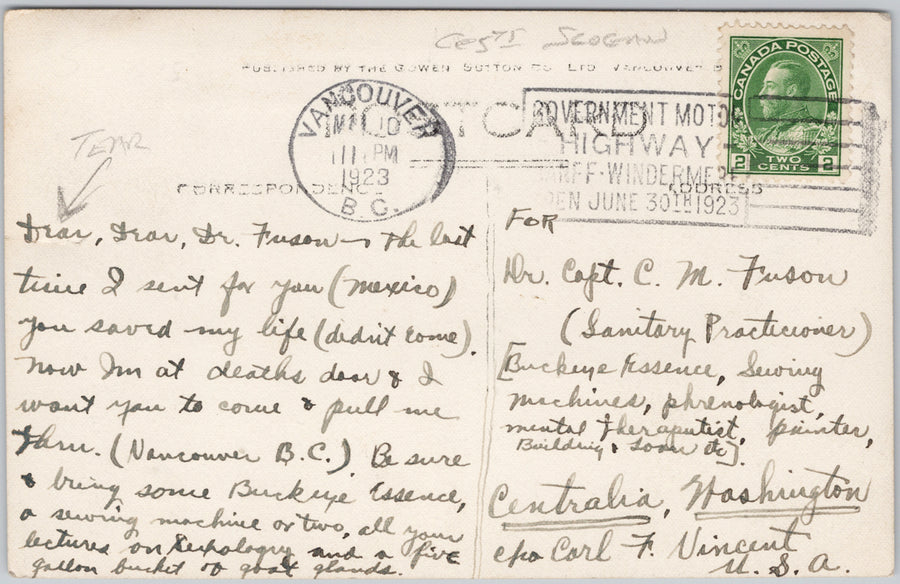 CEST1 SEGEMAN
PUBLISHED BY THE GOWEN SUTTON CO. LTD VANCOUVER B
POST CARD
VANCOUVER
10
PM
1923
B.C.
GOVERNMENT MOTOR
HIGHWAY
BANFF-WINDERMERE
OPEN JUNE 30TH 1923
CANADA POSTAGE
2 TWO CENTS 2
TEAR
CORRESPONDENCE
ADDRESS
Dear, Dear, Dr. Fuson - The last
time I sent for you (Mexico)
you saved my life (didn't come).
Now Im at deaths door & I
want you to come & pull me
thru. (Vancouver B.C.) Be sure
& bring some Buckeye Essence,
a sewing machine or two, all your
lectures on sexology and a five
gallon bucket of goat glands.
FOR
Dr. Capt. C. M. Fuson
(Sanitary Practicioner)
[Buckeye Essence, Sewing
machines, phrenologist,
mental theraputist, painter,
Building & Loan Dr].
Centralia, Washington
c/o Carl F. Vincent
U. S. A.